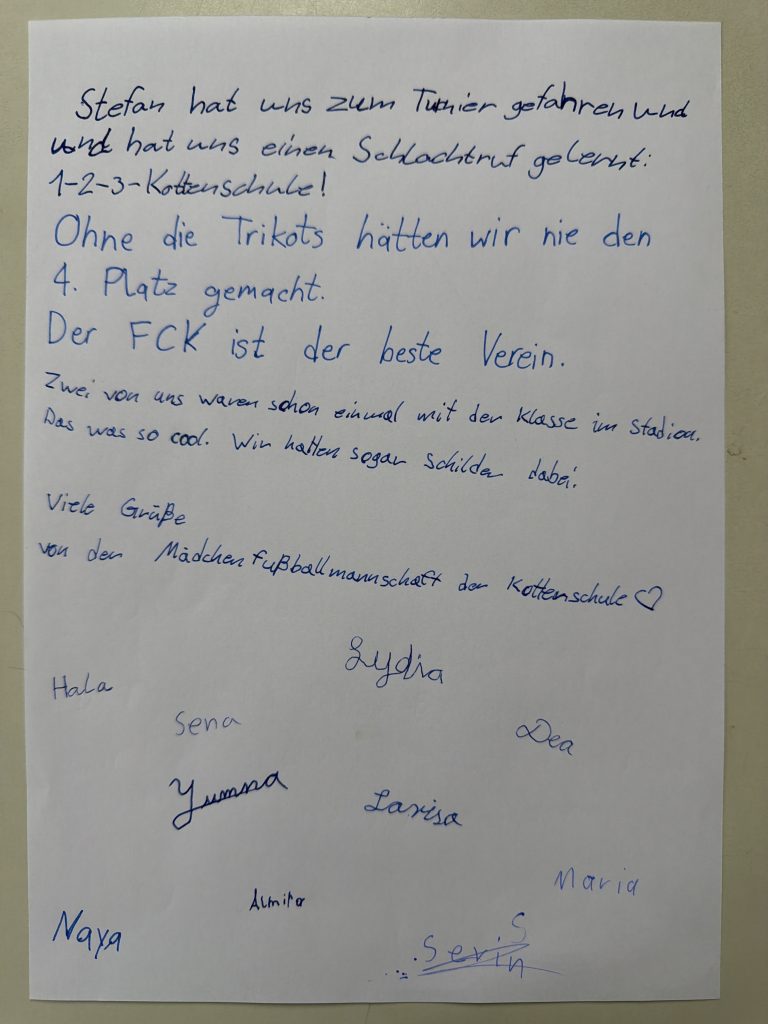 Stefan hat uns zum Turnier gefahren und
und hat uns einen Schlachtruf gelernt:
1-2-3-Kottenschule!
Ohne die Trikots hätten wir nie den
4. Platz gemacht.
Der FCK ist der beste Verein.
Zwei von uns waren schon einmal mit der Klasse im Stadion.
Das was so cool. Wir hatten sogar Schilder dabei.
Viele Grüße
von der Mädchenfußballmannschaft der Kottenschule ♡
Lydia
Hala
Sena
Dea
Yumna
Larisa
Maria
Almira
Naya
S
Serin